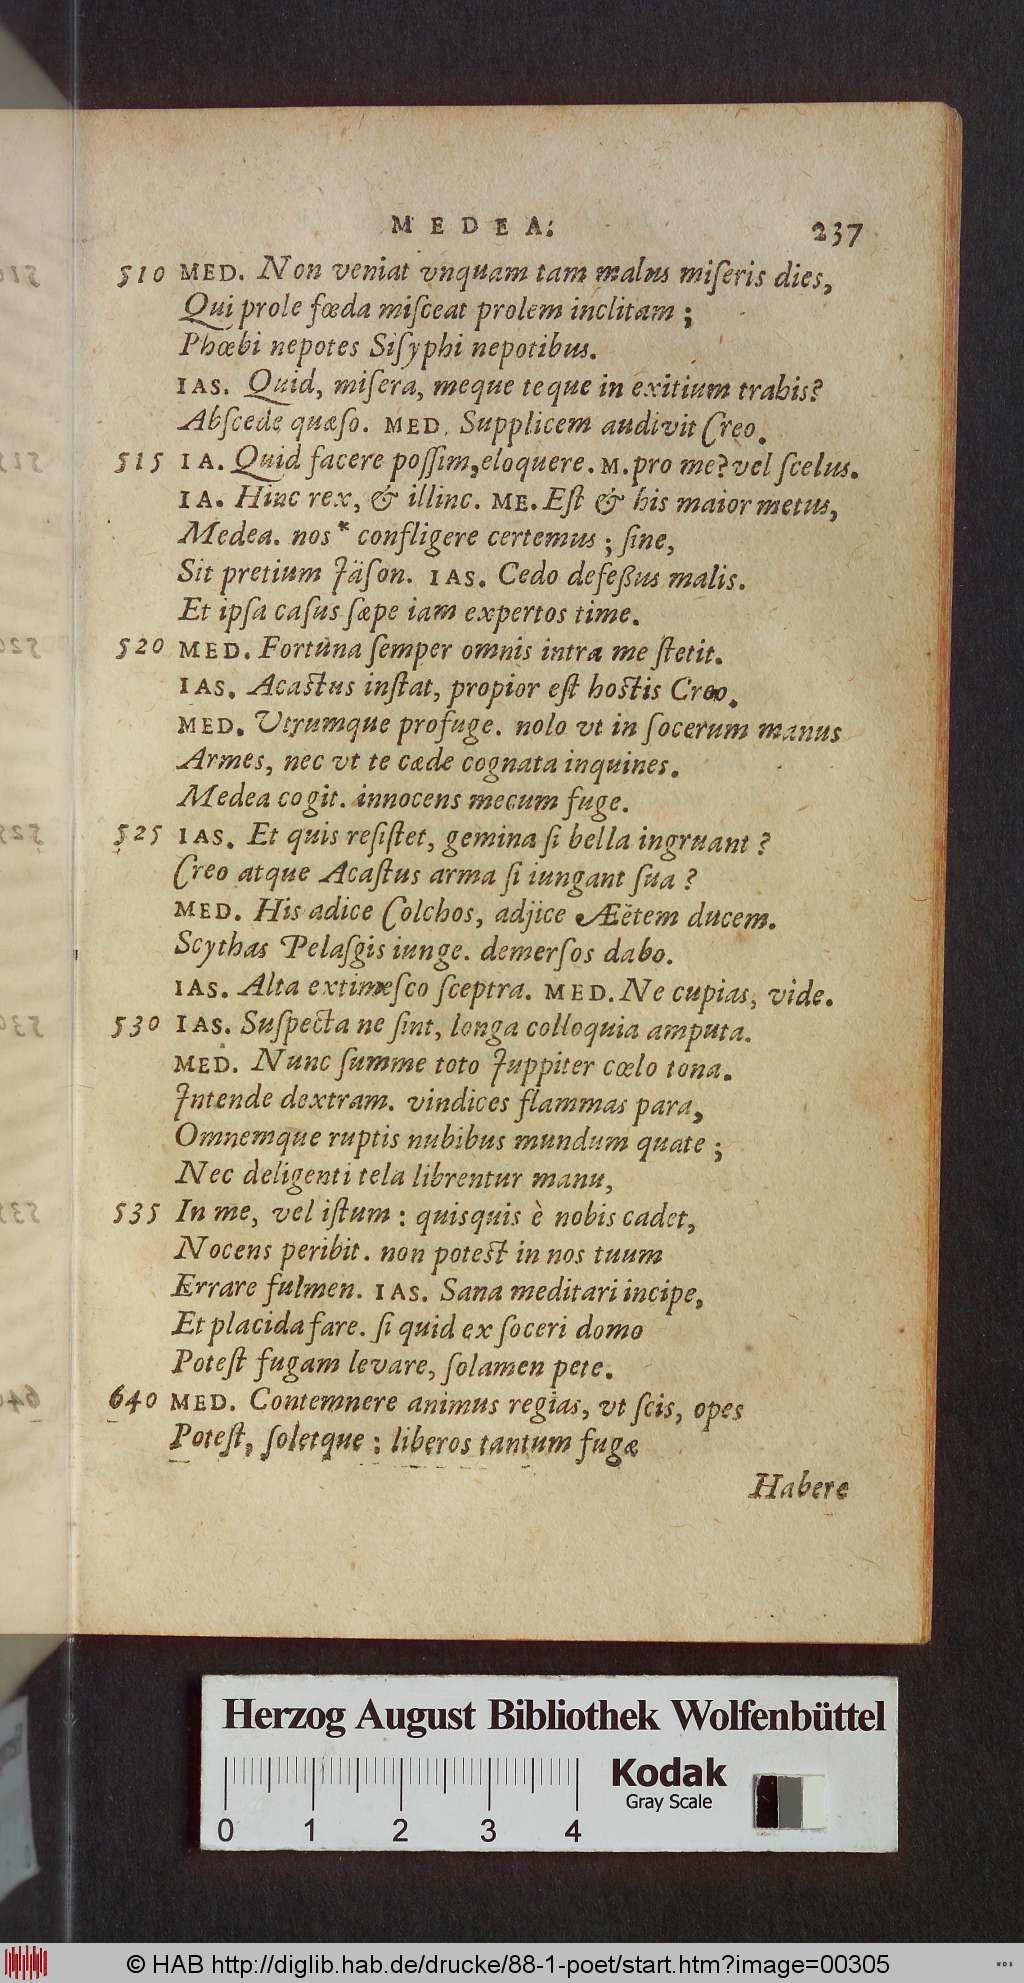 MEDEA. 237
510 MED. Non veniat vnquam tam malus miſeris dies,
Qui prole fœda miſceat prolem inclitam ;
Phœbi nepotes Siſyphi nepotibus.
IAS. Quid, miſera, meque teque in exitium trahis?
Abſcede quæſo. MED. Supplicem audivit Creo.
515 IA. Quid facere poſſim, eloquere. M. pro me? vel ſcelus.
IA. Hinc rex, & illinc. ME. Eſt & his maior metus,
Medea. nos * confligere certemus ; ſine,
Sit pretium Jäſon. IAS. Cedo defeßus malis.
Et ipſa caſus ſæpe iam expertos time.
520 MED. Fortuna ſemper omnis intra me ſtetit.
IAS. Acaſtus inſtat, propior eſt hoſtis Creo.
MED. Vtrumque profuge. nolo vt in ſocerum manus
Armes, nec vt te cæde cognata inquines.
Medea cogit. innocens mecum fuge.
525 IAS. Et quis reſiſtet, gemina ſi bella ingruant ?
Creo atque Acaſtus arma ſi iungant ſua ?
MED. His adice Colchos, adjice Æëtem ducem.
Scythas Pelaſgis iunge. demerſos dabo.
IAS. Alta extimeſco ſceptra. MED. Ne cupias, vide.
530 IAS. Suſpecta ne ſint, longa colloquia amputa.
MED. Nunc ſumme toto Juppiter cœlo tona.
Jntende dextram. vindices flammas para,
Omnemque ruptis nubibus mundum quate ;
Nec deligenti tela librentur manu,
535 In me, vel iſtum : quisquis è nobis cadet,
Nocens peribit. non poteſt in nos tuum
Errare fulmen. IAS. Sana meditari incipe,
Et placida fare. ſi quid ex ſoceri domo
Poteſt fugam levare, ſolamen pete.
640 MED. Contemnere animus regias, vt ſcis, opes
Poteſt, ſoletque : liberos tantum fugæ
Habere
Herzog August Bibliothek Wolfenbüttel
Kodak
Gray Scale
0 1 2 3 4
© HAB http://diglib.hab.de/drucke/88-1-poet/start.htm?image=00305